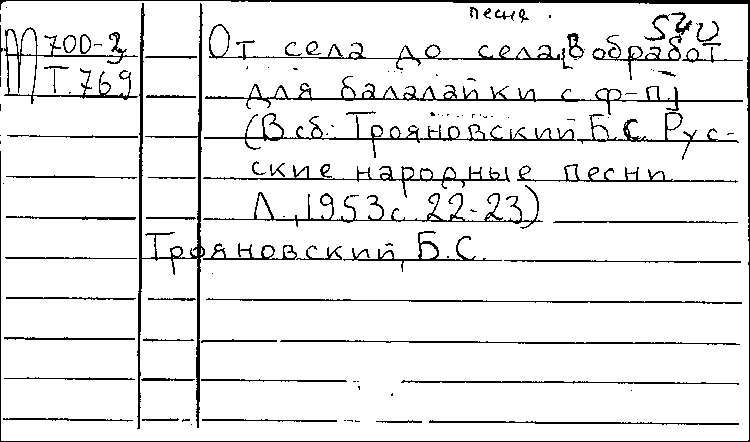 песня.
540
М 700-3
Т.769
От села до села [В обработ.
для балалайки с ф-п.]
(В сб: Трояновский, Б.С. Рус-
ские народные песни
Л., 1953 с. 22-23)
Трояновский, Б.С.